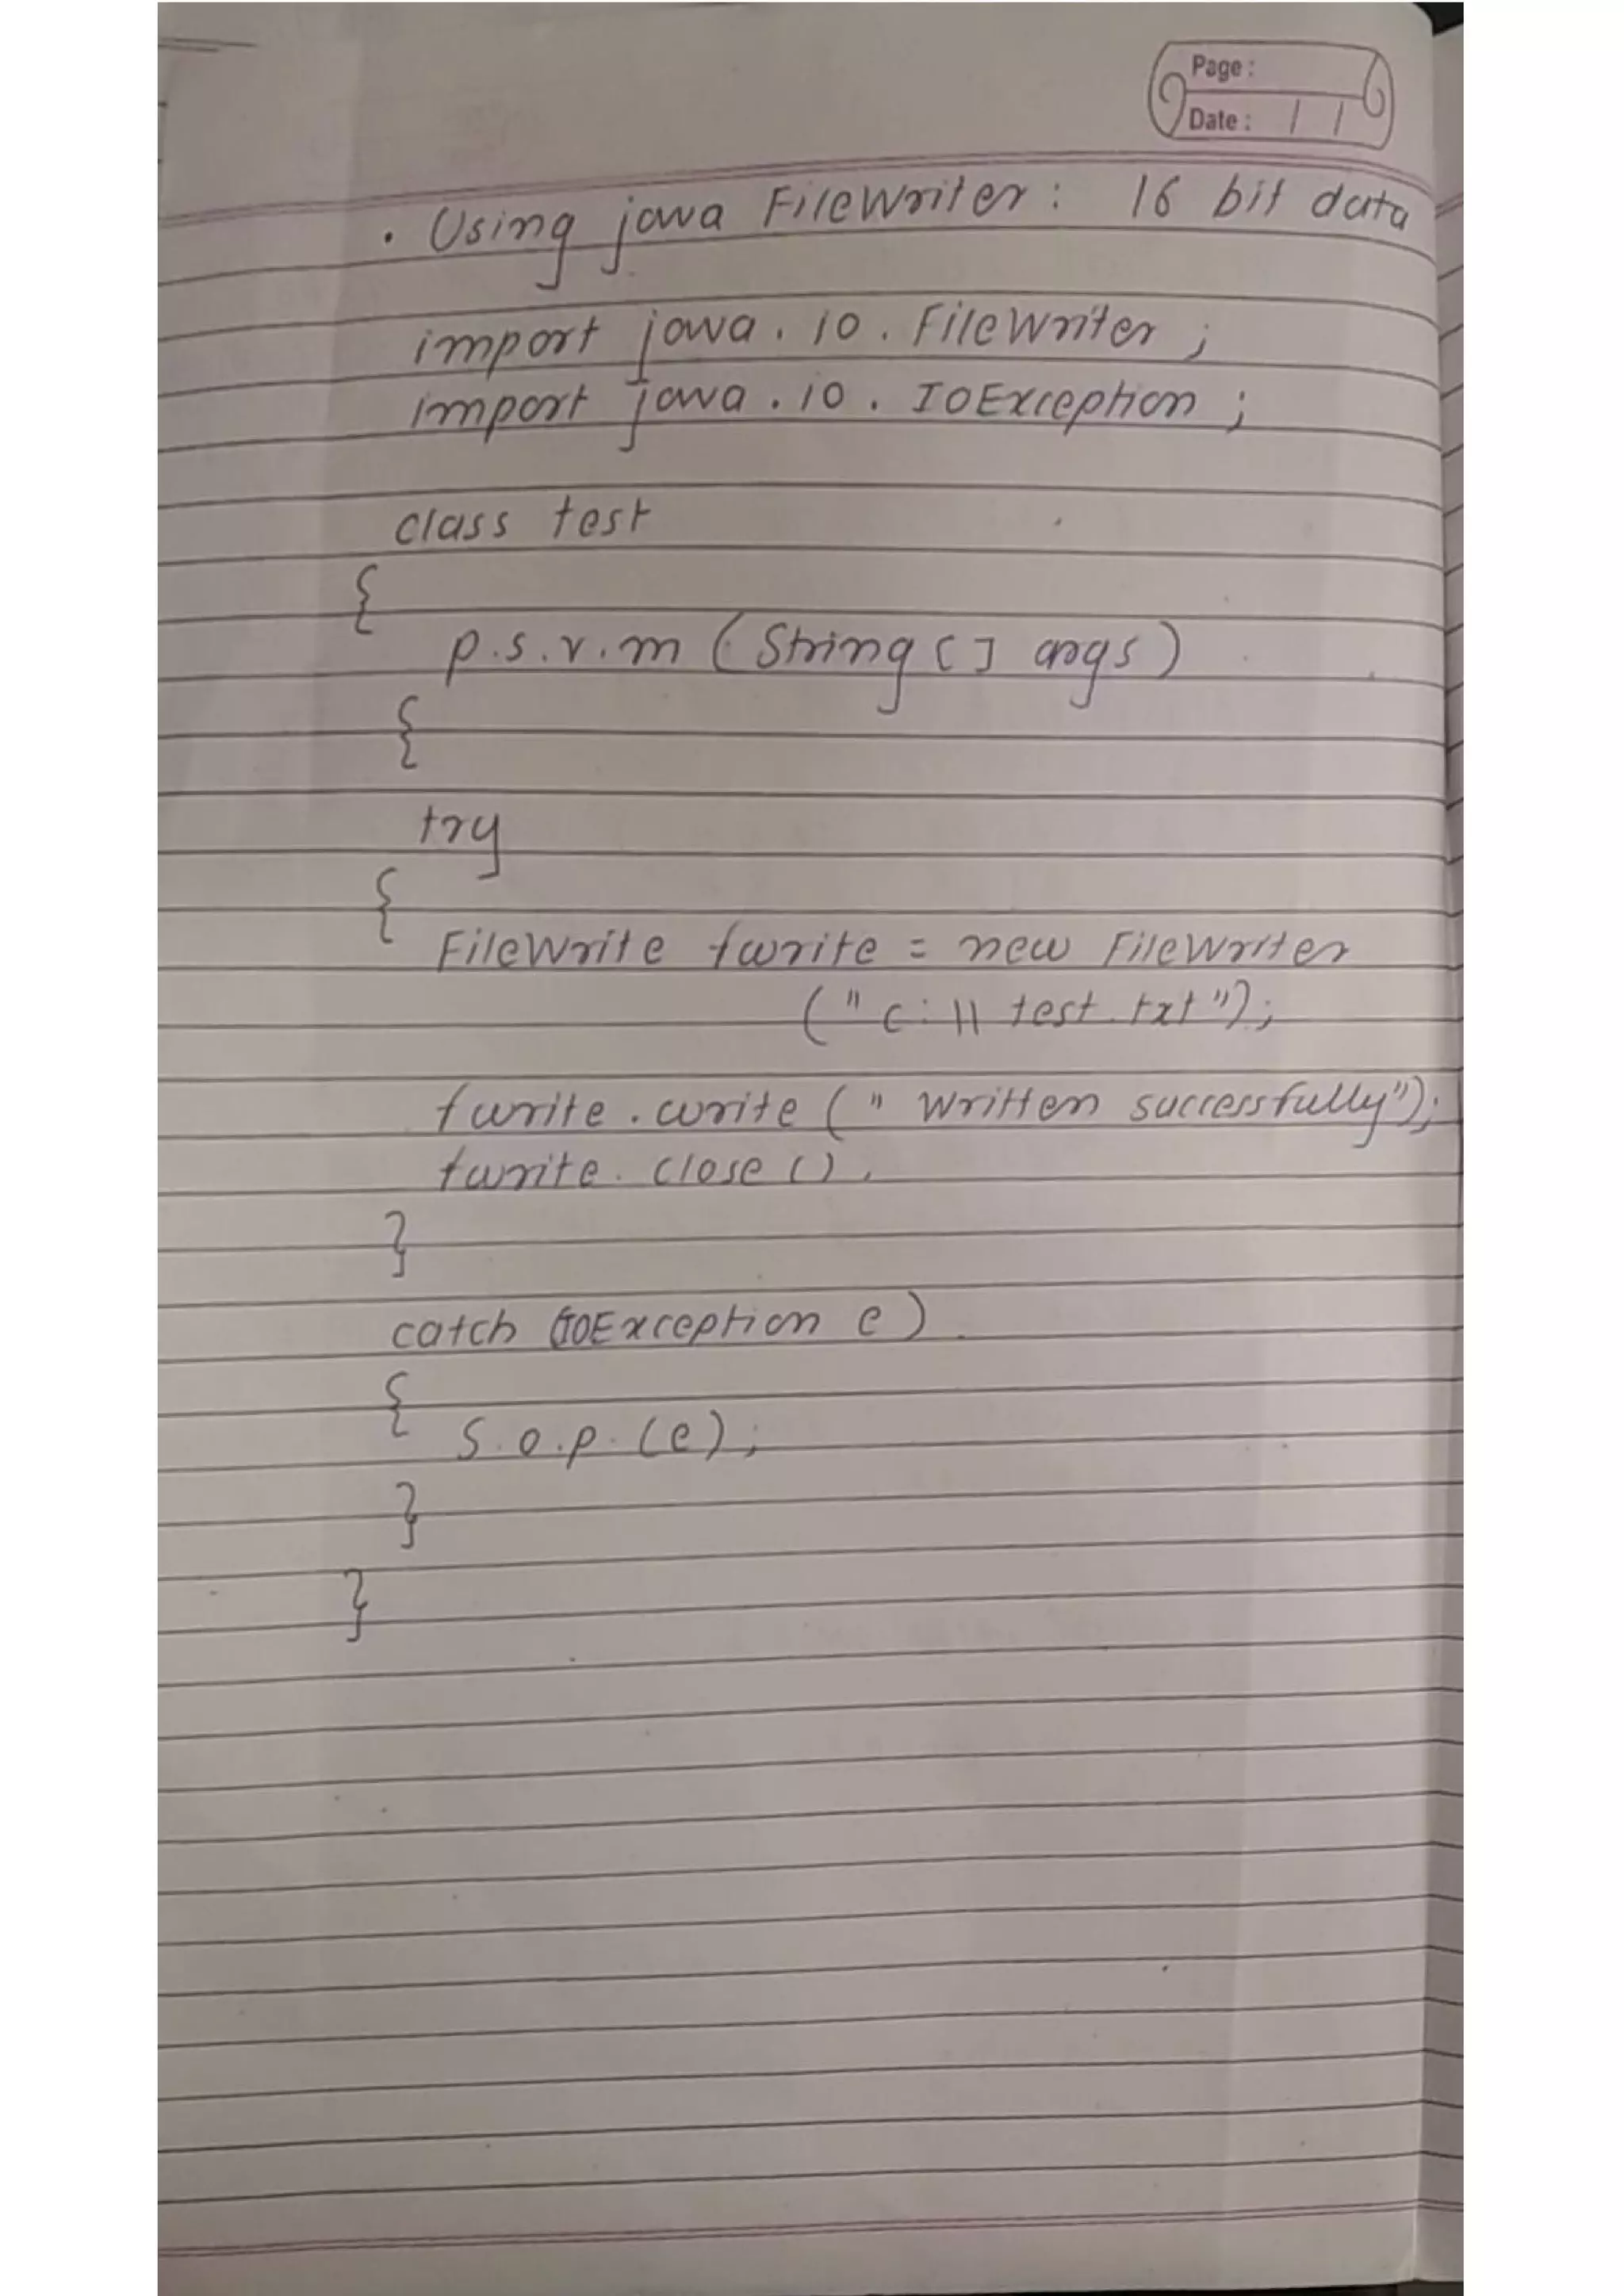 Page :
Date : / /
. Using java FileWriter : 16 bit data
import java . io . FileWriter ;
import java . io . IOException ;
class test
{
p.s.v.m ( String [ ] args )
{
try
{
FileWrite fwrite = new FileWriter
( " c : \\ test . txt " ) ;
fwrite . write ( " Written successfully " ) ;
fwrite . close ( ) ,
}
catch (IOException e )
{
S.o.p. (e) ;
}
}